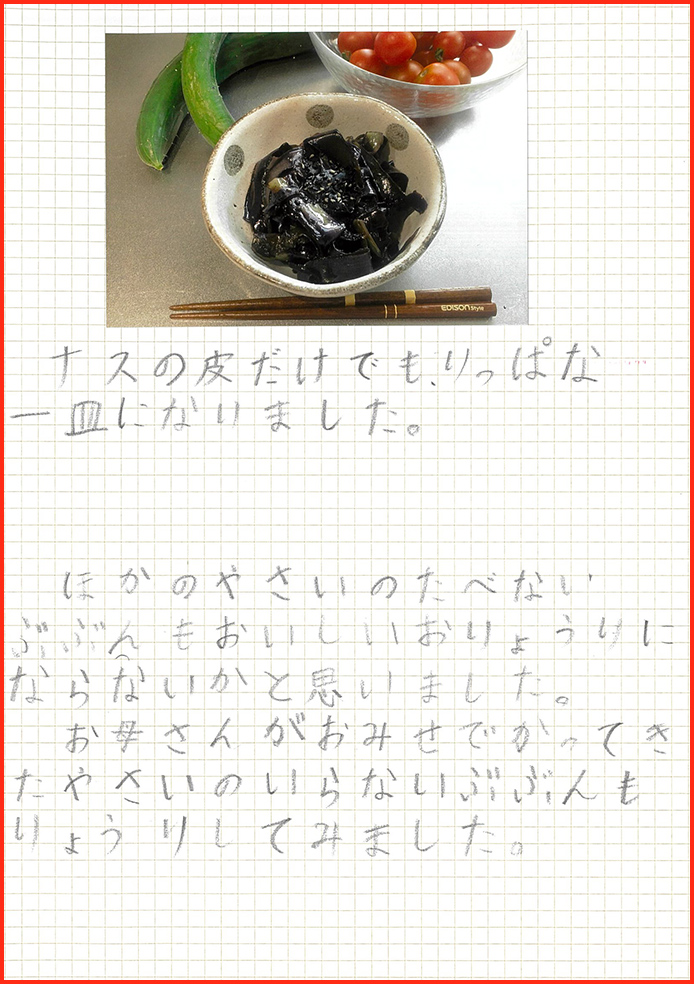 EDISON Style
ナスの皮だけでも、りっぱな
一皿になりました。
ほかのやさいのたべない
ぶぶんもおいしいおりょうりに
ならないかと思いました。
お母さんがおみせでかってき
たやさいのいらないぶぶんも
りょうりしてみました。